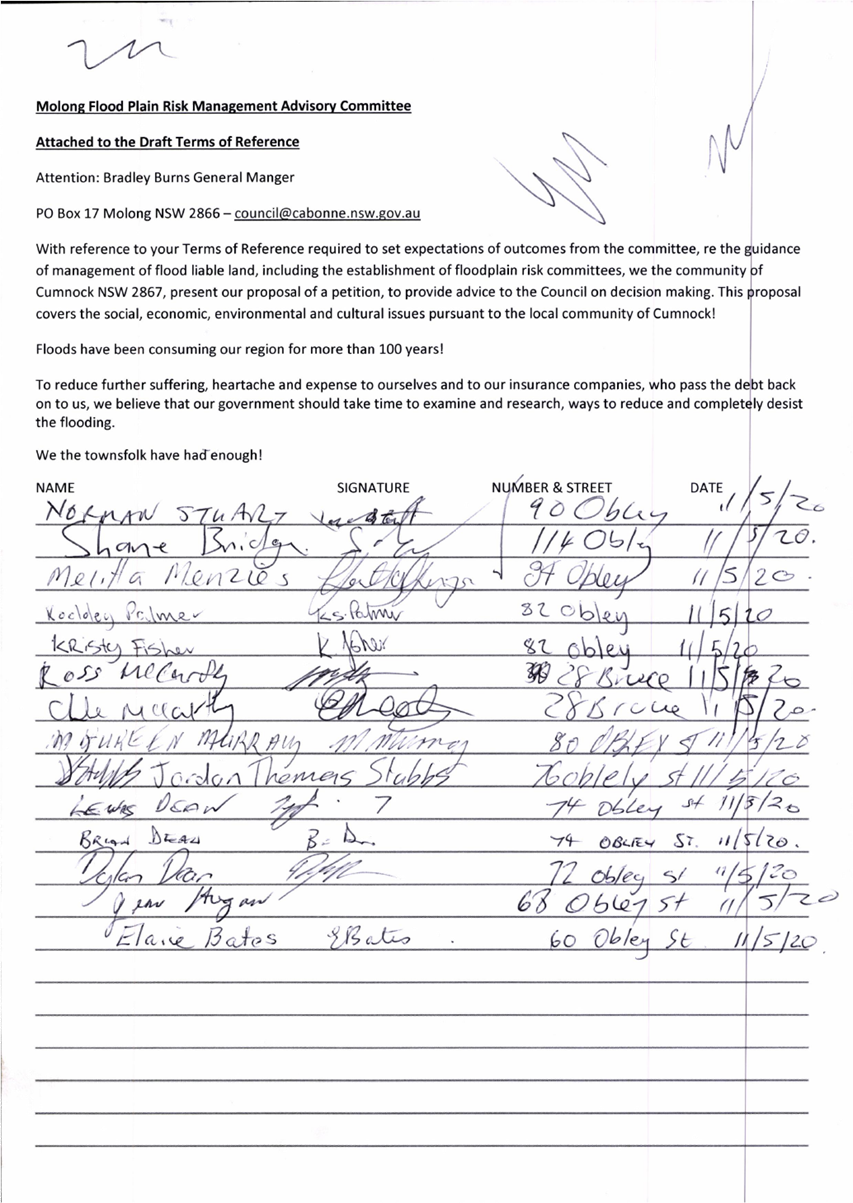 Molong Flood Plain Risk Management Advisory Committee
Attached to the Draft Terms of Reference
Attention: Bradley Burns General Manger
PO Box 17 Molong NSW 2866 – council@cabonne.nsw.gov.au
With reference to your Terms of Reference required to set expectations of outcomes from the committee, re the guidance
of management of flood liable land, including the establishment of floodplain risk committees, we the community of
Cumnock NSW 2867, present our proposal of a petition, to provide advice to the Council on decision making. This proposal
covers the social, economic, environmental and cultural issues pursuant to the local community of Cumnock!
Floods have been consuming our region for more than 100 years!
To reduce further suffering, heartache and expense to ourselves and to our insurance companies, who pass the debt back
on to us, we believe that our government should take time to examine and research, ways to reduce and completely desist
the flooding.
We the townsfolk have had enough!
NAME SIGNATURE NUMBER & STREET DATE
NORMAN STUART 90 Obley 11/5/20
Shane 114 Obly 11/5/20.
Melitta Menzies Obley 11/5/20.
Palmer K.S. Palmer 82 Obley 11/5/20
KRISTY FISHER K Fisher 82 Obley 11/5/20
ROSS McCarthy 28 Bruce 11/5/20
McCarthy 28 Bruce 11/5/20.
MAUREEN MURRAY M Murray 80 OBLEY ST 11/5/20
Jordan Thomas Stubbs 76 oblely st 11/5/20
LEWIS DEAN 74 Obley st 11/5/20
BRIAN DEAN B. D 74 OBLEY ST. 11/5/20.
Dylan Dean 72 Obley st 11/5/20
68 Obley st 11/5/20
Elaine Bates E Bates 60 Obley St 11/5/20.